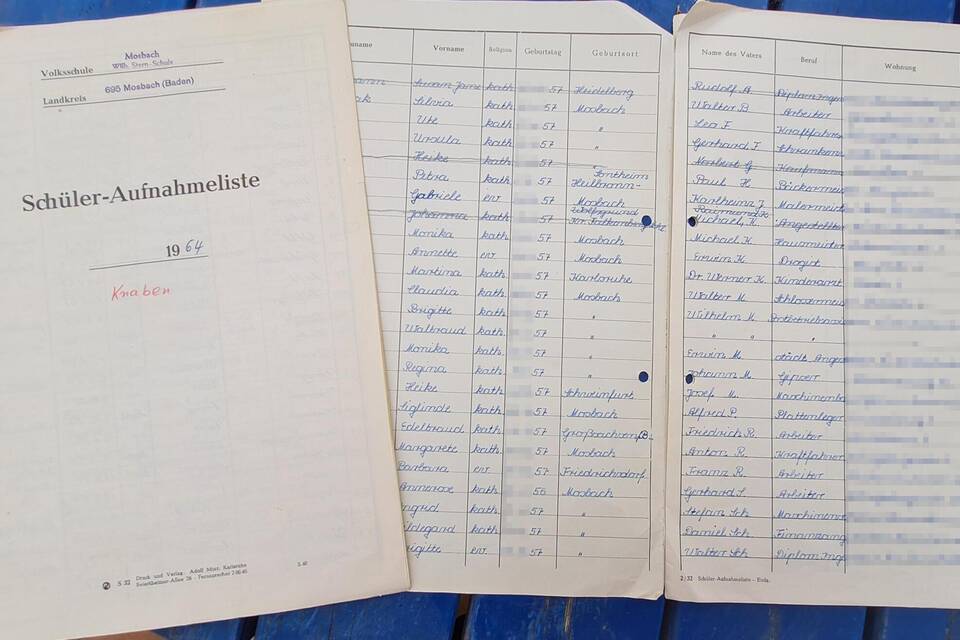 Mosbach
Volksschule Wilh. Stern-Schule
Landkreis 695 Mosbach (Baden)
Schüler-Aufnahmeliste
1964
Knaben
S 32 Druck und Verlag: Adolf Karlsruhe
S. 40
uname Vorname Religion Geburtstag Geburtsort
kath 57 Heidelberg
ak Silvia kath 57 Mosbach
Ute kath 57 "
Ursula kath 57 "
Heike kath 57
Petra kath 57 Heilbronn-
Gabriele ev 57 Mosbach
Johanna kath 57
Monika kath 57 Mosbach
Annette ev 57 Mosbach
Martina kath 57 Karlsruhe
Claudia kath 57 Mosbach
Brigitte kath. 57 "
Waltraud kath. 57 "
Monika kath. 57 "
Regina kath. 57 "
Heike kath 57 Schweinfurt
Siglinde kath 57 Mosbach
Edeltraud kath. 57
Margarete kath. 57 Mosbach
Barbara ev 57 Friedrichsdorf
Annerose kath. 56 Mosbach
ngrid kath. 57 "
ildegard kath. 57 "
rigitte ev. 57 "
Name des Vaters Beruf Wohnung
Rudolf A Diplom Ingen
Walter B Arbeiter
Leo F. Kraftfahrer
Gerhard F. Schranken
Norbert G Kaufmann
Paul H. Bäckermeis
Karlheinz J Malermeist
Raimund K.
Michael K. Angestellter
Michael K. Hausmeister
Erwin K. Drogist
Dr. Werner K. Kinderarzt
Walter M. Schlossermeis
Wilhelm M.
" " "
Erwin M. städt. Anges
Johann M. Gipser
Josef M. Maschinenba
Alfred P. Plattenleger
Friedrich R. Arbeiter
Anton R. Kraftfahrer
Franz R. Arbeiter
Gerhard S. Arbeiter
Stefan Sch Maschinen
Daniel Sch Finanz
Walter Sch Diplom Inge
2/32 Schüler-Aufnahmeliste - Einl.